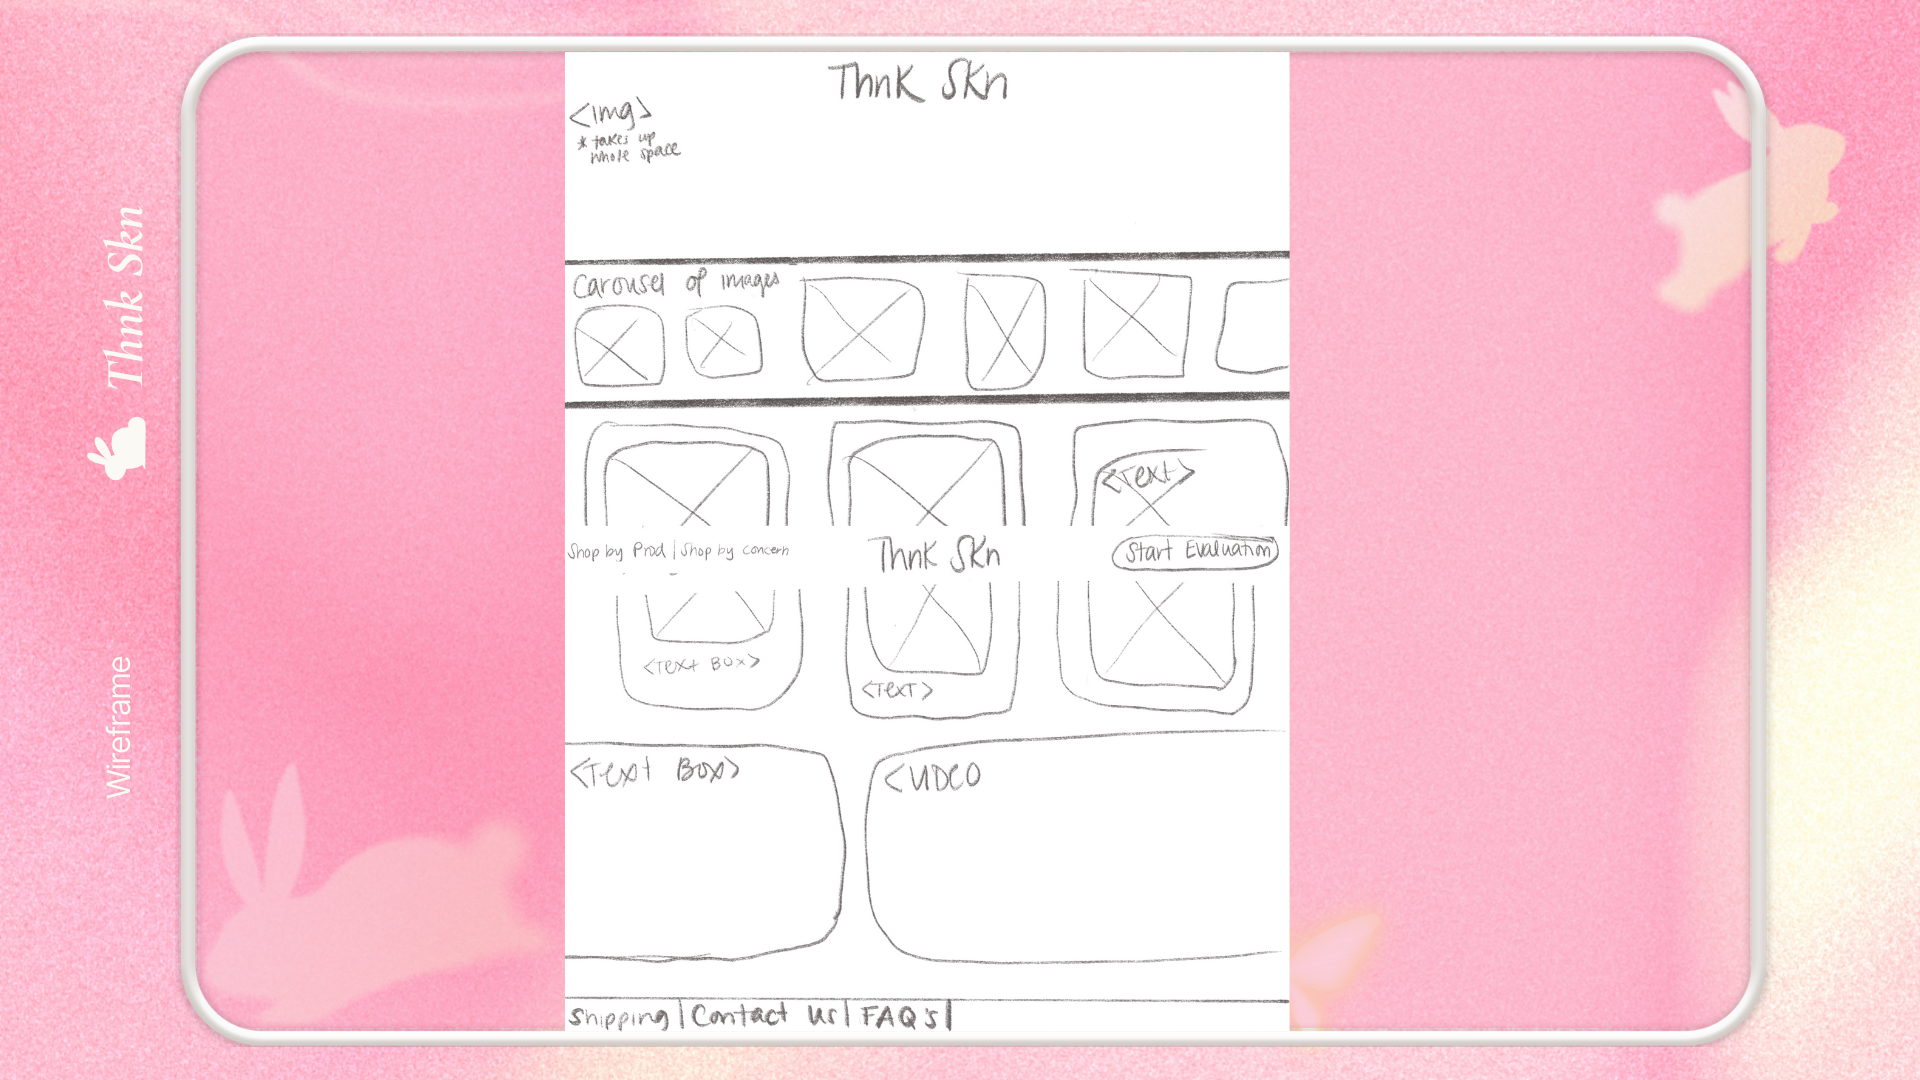 Thnk Skn
Wireframe
Thnk Skn
<img>
* takes up
whole space
Carousel of images
<Text>
Shop by Prod | Shop by concern
Thnk Skn
Start Evaluation
<Text Box>
<Text>
<Text Box>
<VIDEO
Shipping | Contact Us | FAQ's |